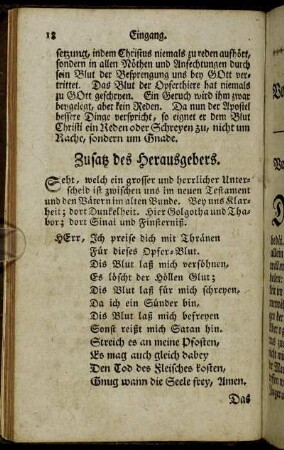 18 Eingang.
setzung, indem Christus niemals zu reden aufhört,
sondern in allen Nöthen und Anfechtungen durch
sein Blut der Besprengung uns bey GOtt ver-
trittet. Das Blut der Opferthiere hat niemals
zu GOtt geschryen. Ein Geruch wird ihm zwar
beygelegt, aber kein Reden. Da nun der Apostel
bessere Dinge verspricht, so eignet er dem Blut
Christi ein Reden oder Schreyen zu, nicht um
Rache, sondern um Gnade.
Zusatz des Herausgebers.
Seht, welch ein grosser und herrlicher Unter-
scheid ist zwischen uns im neuen Testament
und den Vätern im alten Bunde. Bey uns Klar-
heit; dort Dunkelheit. Hier Golgotha und Tha-
bor; dort Sinai und Finsterniß.
HErr, Ich preise dich mit Thränen
Für dieses Opfer-Blut.
Dis Blut laß mich versöhnen,
Es löscht der Höllen Glut;
Dis Blut laß für mich schreyen,
Da ich ein Sünder bin,
Dis Blut laß mich befreyen
Sonst reißt mich Satan hin.
Streich es an meine Pfosten,
Es mag auch gleich dabey
Den Tod des Fleisches kosten,
Gnug wann die Seele frey, Amen.
Das